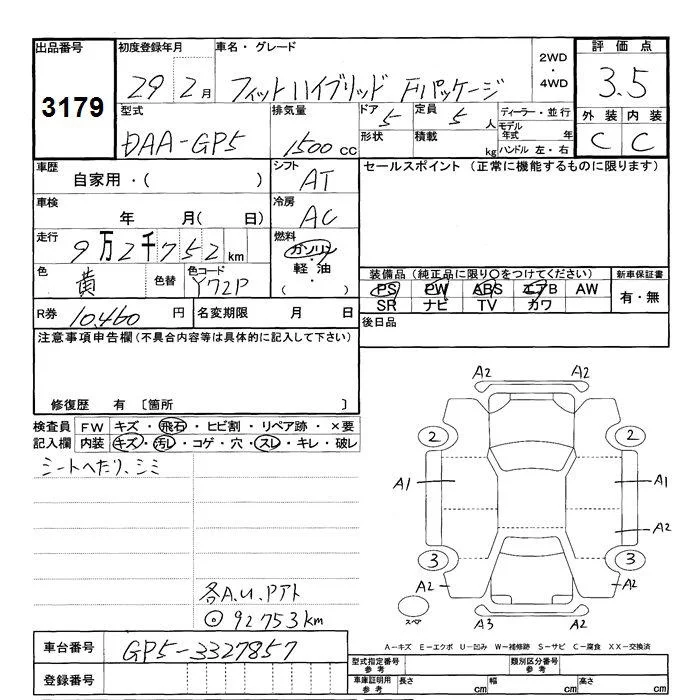 出品番号 初度登録年月 車名・グレード 2WD・4WD 評価点
3179 29 2月 フィットハイブリッド Fパッケージ 3.5
型式 排気量 ドア 5 定員 5人 ディーラー・並行 外装 内装
DAA-GP5 1500cc 形状 積載 kg モデル年式 年 ハンドル 左・右 C C
車歴 自家用・( ) シフト AT セールスポイント (正常に機能するものに限ります)
車検 年 月( 日) 冷房 AC
走行 9万2千752km 燃料 ガソリン・軽油 ( )
色 黄 色替 色コード Y72P 装備品 (純正品に限り○をつけてください) 新車保証書
PS PW ABS エアB AW 有・無
SR ナビ TV カワ
R券 10,460円 名変期限 月 日 後日品
注意事項申告欄 (不具合内容等は具体的に記入して下さい)
修復歴 有 [箇所 ]
検査員 FW キズ・飛石・ヒビ割・リペア跡・×要
記入欄 内装 キズ・汚レ・コゲ・穴・スレ・キレ・破レ
シートヘたり、シミ
A2 A2
2 2
A1 A1
A2
3 3
A2 A2
A3 A2
スペア
各A.U.Pアト
◎92753km
A－キズ E－エクボ U－凹み W－補修跡 S－サビ C－腐食 XX－交換済
車台番号 GP5-3327857 型式指定番号 参考 類別区分番号 参考
登録番号 車庫証明用 参考 長さ cm 幅 cm 高さ cm